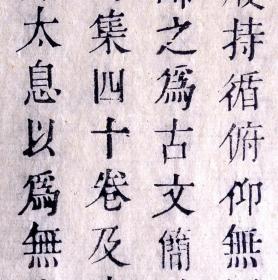 持循俯仰無
之爲古文簡
集四十卷及
太息以爲無